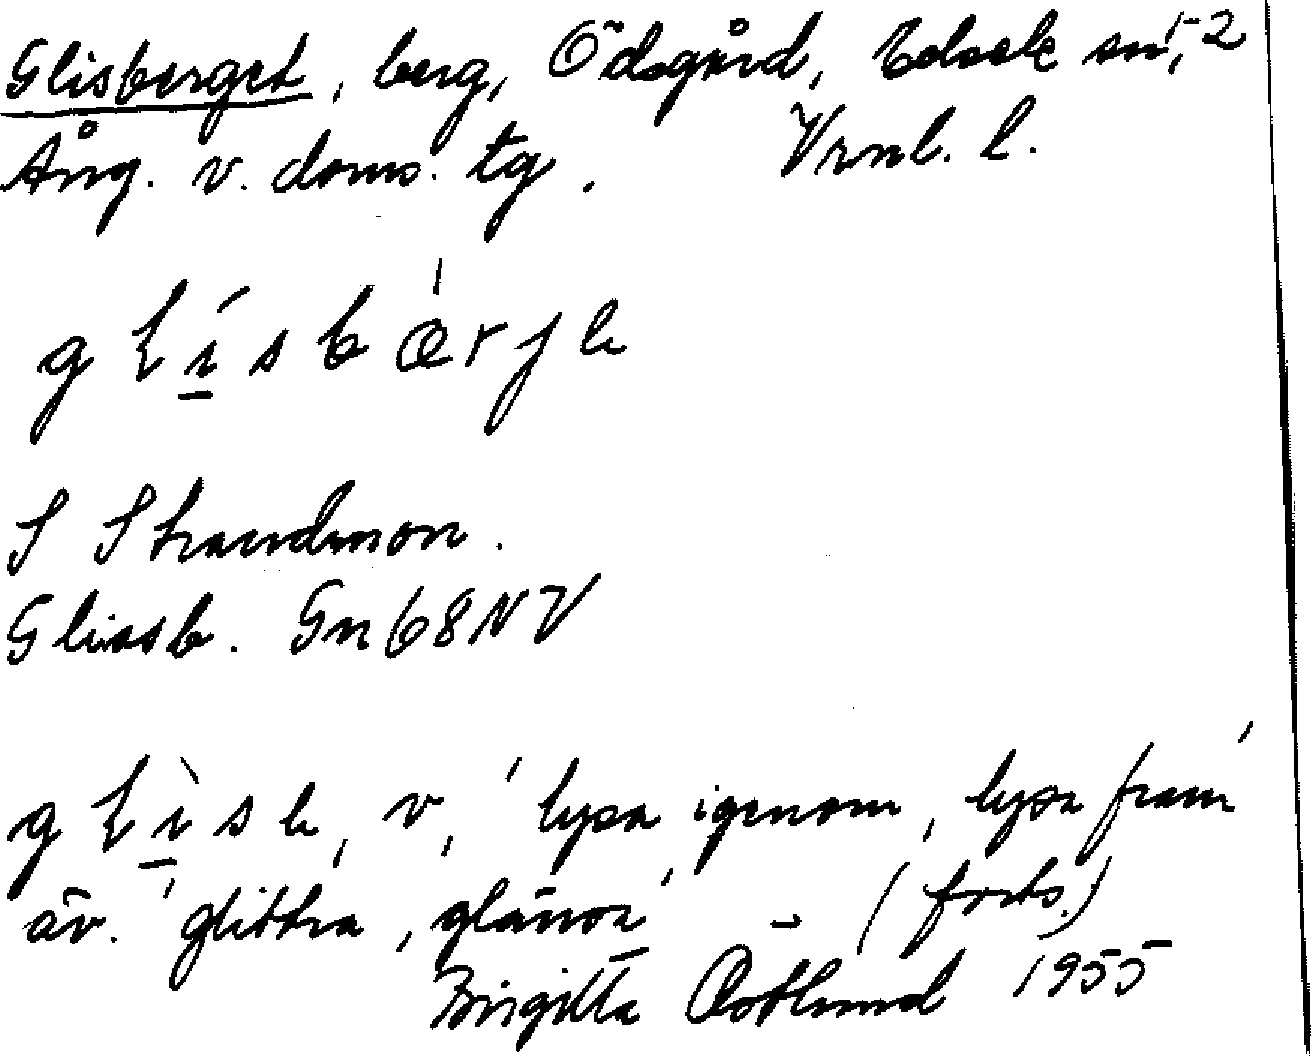 Glisberget, berg, Ödsgård, Edsele sn, 2
Ång. v. doms. tg. Vrnl. l.
glisbærje
S Strandmon.
Glissb. Gn 68 NV
glise, v, 'lysa igenom, lysa fram'
äv. 'glittra, glänsa' - (forts.)
Birgitta Östlund 1955